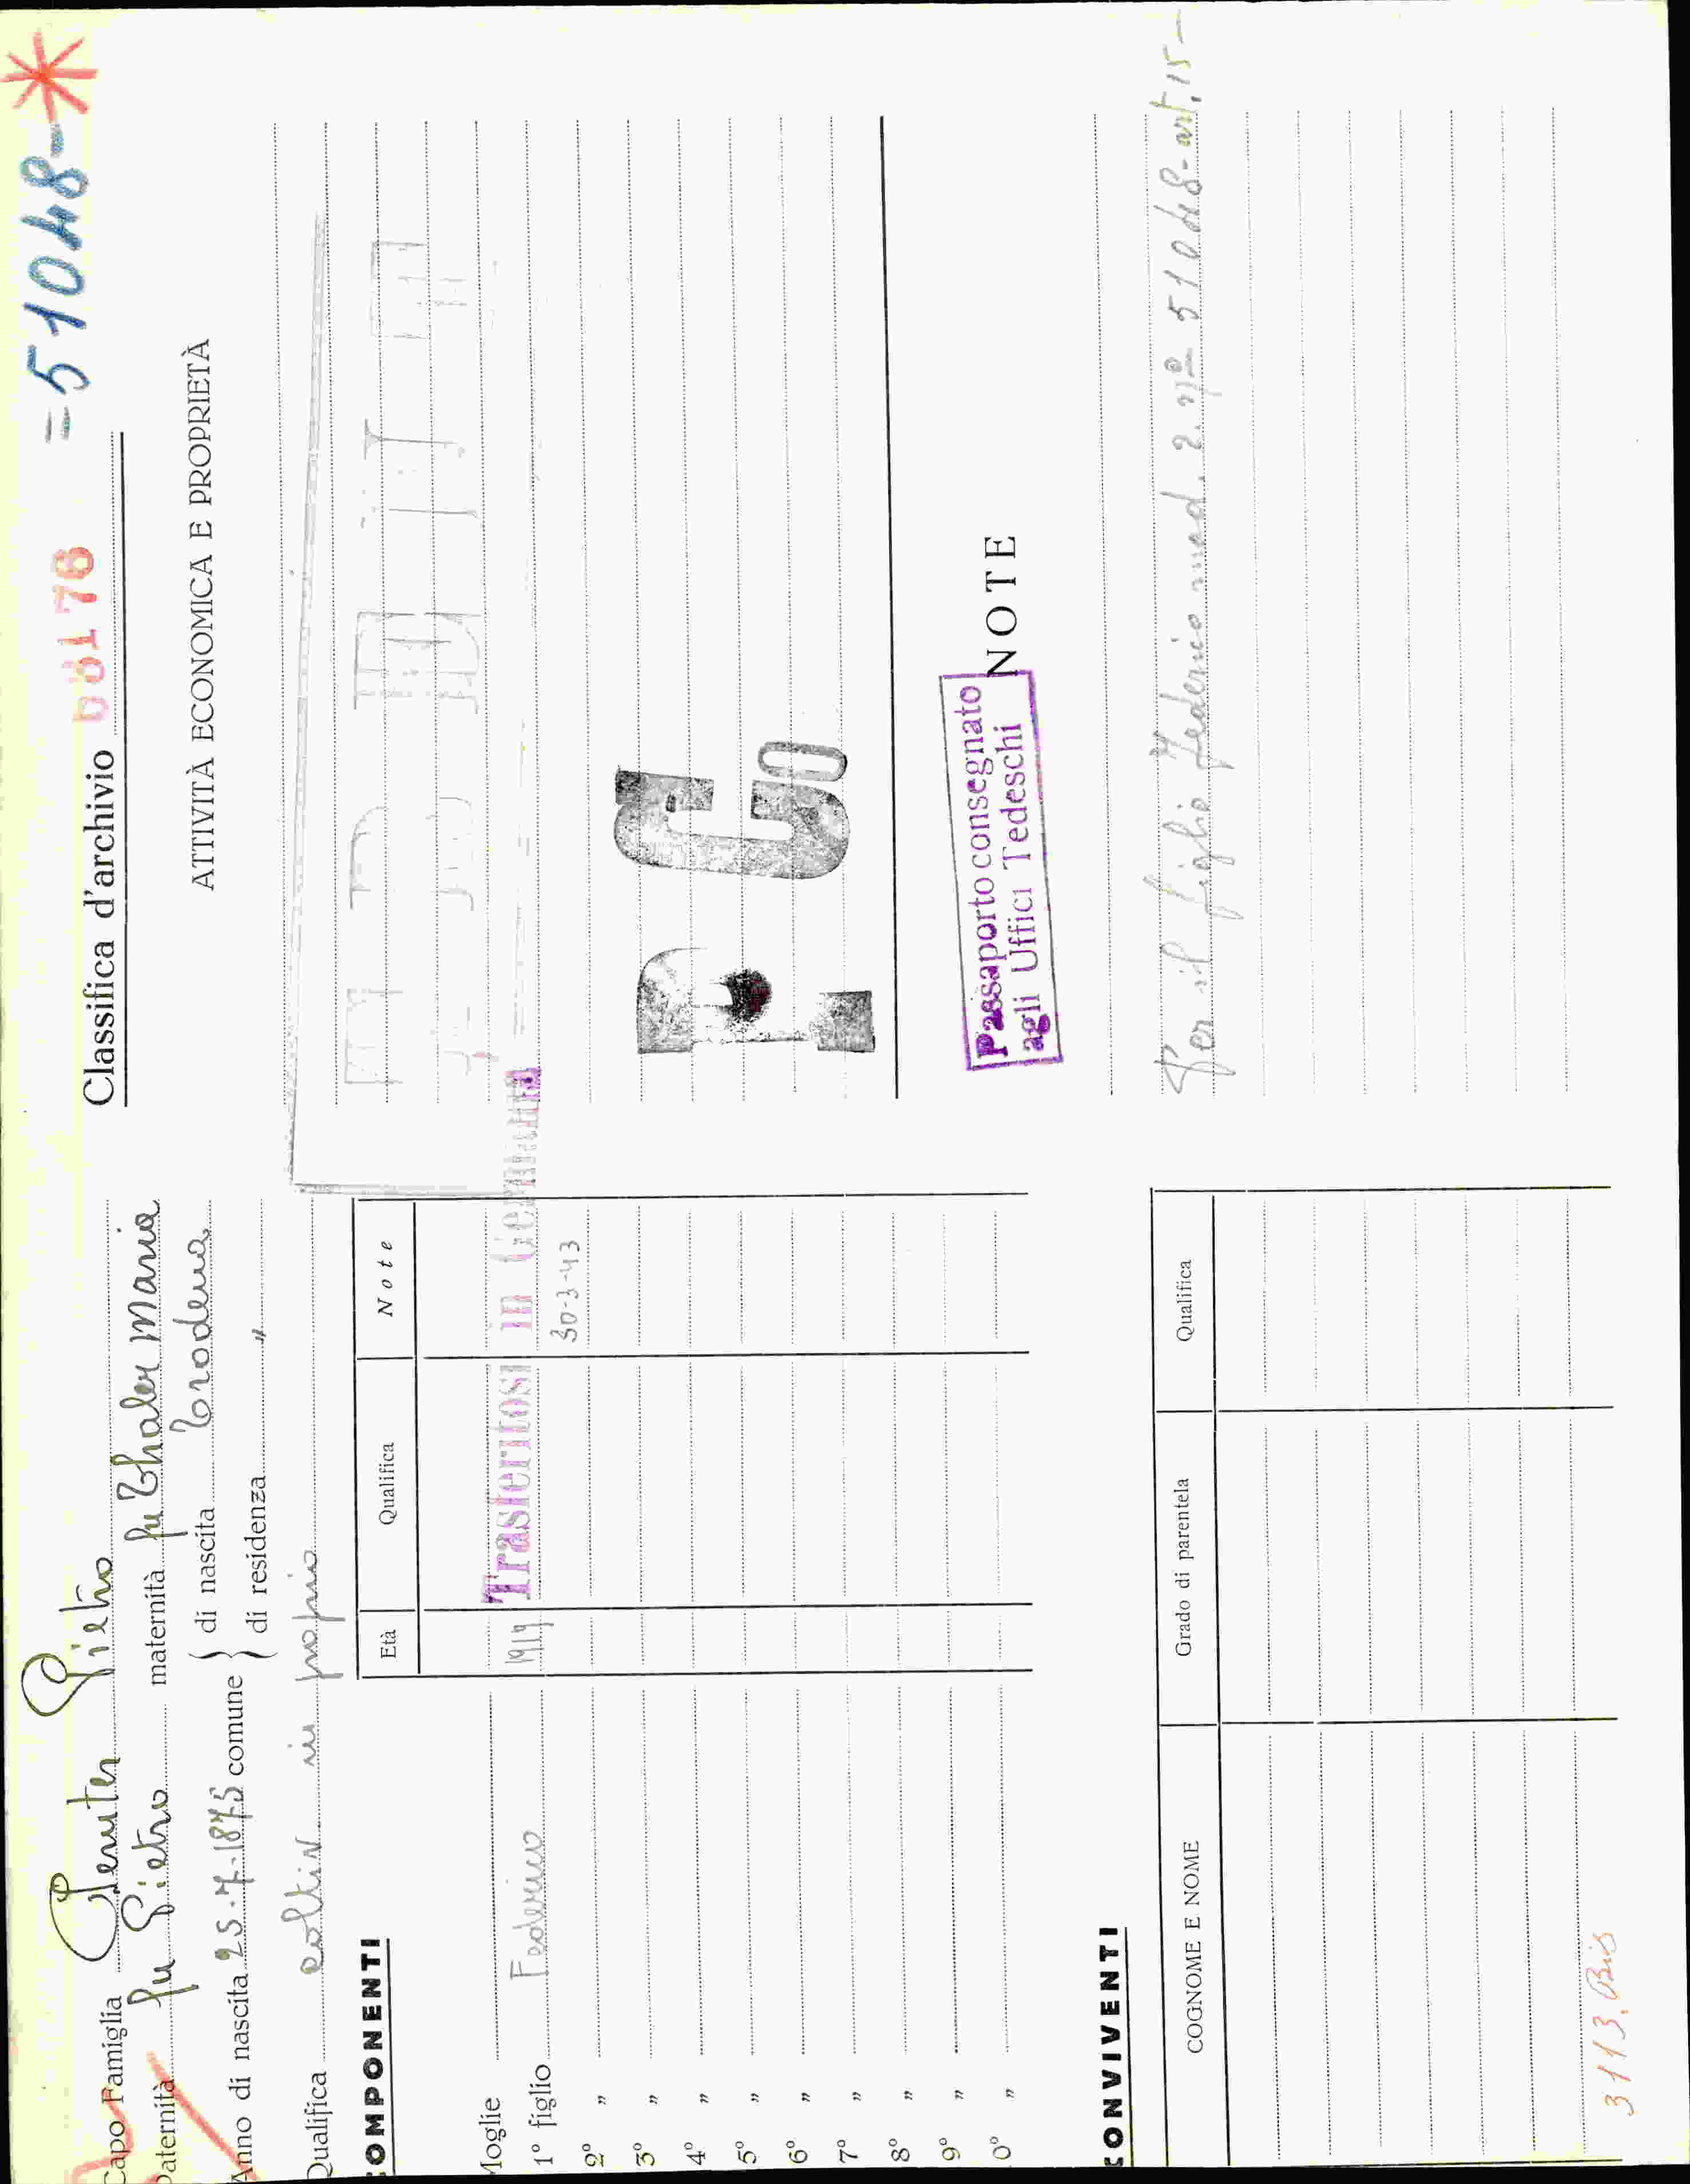 Classifica d'archivio 55176 = 51048-
Capo Famiglia Penuter Pietro
Paternità fu Pietro maternità fu Thaler Maria
Anno di nascita 25-7-1875 comune } di nascita Trodena
} di residenza "
Qualifica coltiv. in proprio
COMPONENTI
Età Qualifica Note
Moglie
1° figlio Federico 1914 Trasferitosi in Germania
30-3-43
2° "
3° "
4° "
5° "
6° "
7° "
8° "
9° "
0° "
CONVIVENTI
COGNOME E NOME Grado di parentela Qualifica
3113. Bis
ATTIVITÀ ECONOMICA E PROPRIETÀ
Passaporto consegnato
agli Uffici Tedeschi
NOTE
Per il figlio Federico med. 2. n° 51048- art. 15-